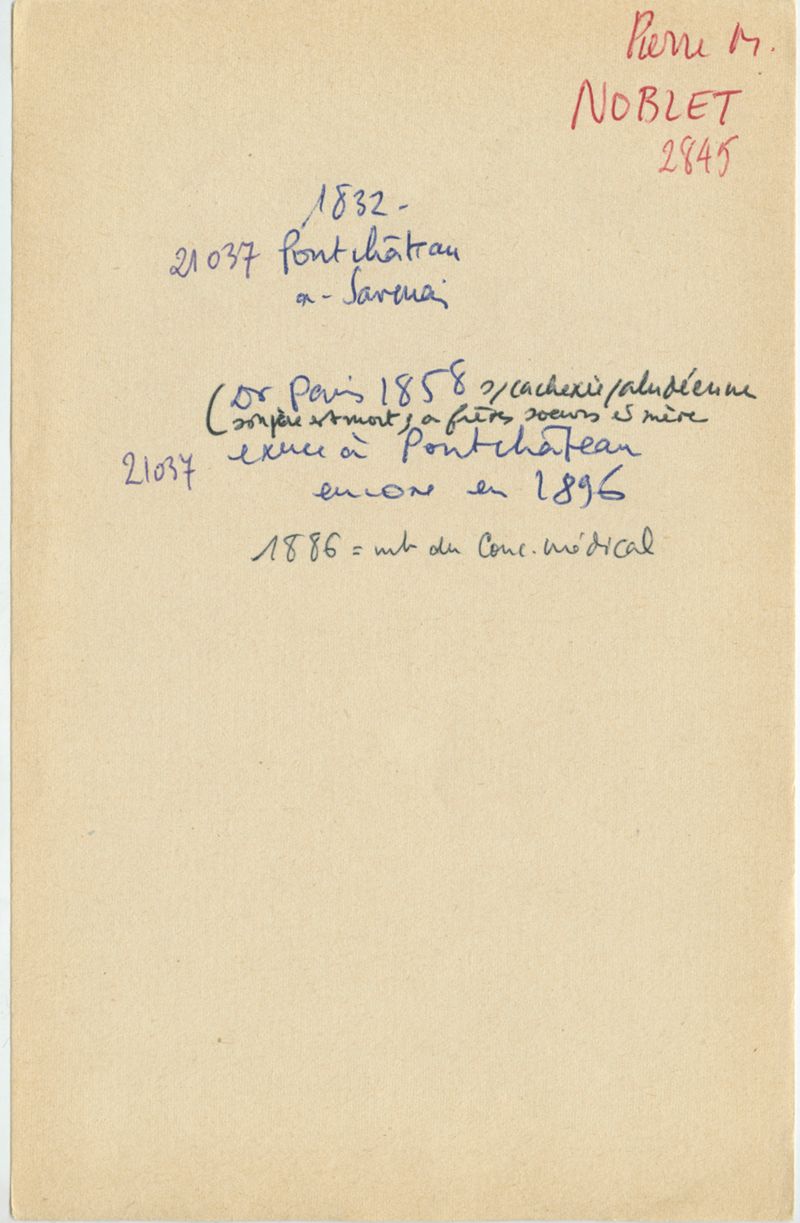 Pierre M.
NOBLET
2845
1832 -
21037 Pontchâteau
a - Savenai
(Dr Paris 1858 s/cachexie paludéenne
son père est mort; a frères soeurs et mère
21037 exerce à Pontchâteau
encore en 1896
1886 = mb du Conc. médical